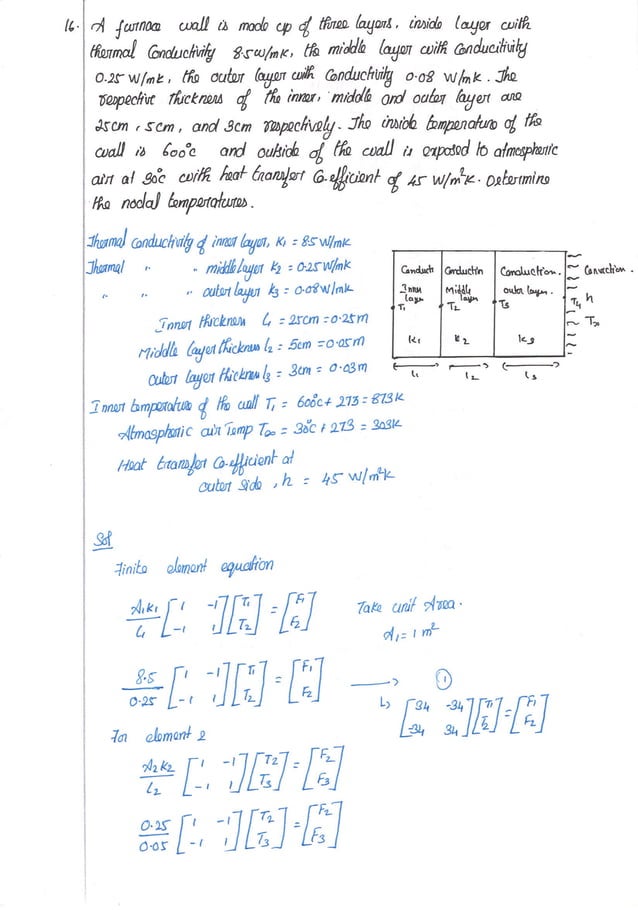 16. A furnace wall is made up of three layers, inside layer with
thermal conductivity 8.5w/mk, the middle layer with conducitivity
0.25 W/mk, the outer layer with conductivity 0.08 W/mk. The
respective thickness of the inner, middle and outer layer are
25cm, 5cm, and 3cm respectively. The inside temperature of the
wall is 600°c and outside of the wall is exposed to atmospheric
air at 30°c with heat transfer Co-efficient of 45 W/m²K. Determine
the nodal temperatures.
Thermal conductivity of inner layer, K₁ = 8.5 W/mK
Thermal " " middle layer K₂ = 0.25 W/mK
" " " outer layer K₃ = 0.08 W/mK
Inner thickness l₁ = 25cm = 0.25m
Middle Layer thickness l₂ = 5cm = 0.05m
Outer Layer thickness l₃ = 3cm = 0.03m
Inner temperature of the wall T₁ = 600°c + 273 = 873K
Atmospheric air Temp T∞ = 30°c + 273 = 303K
Heat transfer Co-efficient at
outer side, h = 45 W/m²K
Conducti Conduction Conduction. Convection.
Inner layer Middle layer outer layer.
T₁ T₂ T₃ T₄ h
T∞
K₁ K₂ K₃
l₁ l₂ l₃
Sol
Finite element equation
A₁K₁/l₁ [1 -1; -1 1] [T₁; T₂] = [F₁; F₂] Take unit Area.
A₁ = 1 m²
8.5/0.25 [1 -1; -1 1] [T₁; T₂] = [F₁; F₂] → ①
↳ [34 -34; -34 34] [T₁; T₂] = [F₁; F₂]
For element 2
A₂K₂/l₂ [1 -1; -1 1] [T₂; T₃] = [F₂; F₃]
0.25/0.05 [1 -1; -1 1] [T₂; T₃] = [F₂; F₃]